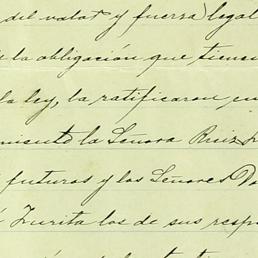 del valor y fuerza legal
la obligación que tienen
la ley, la ratificaron en
miento la Señora Ruiz
futuros y los Señores Do
Zurita los de sus resp